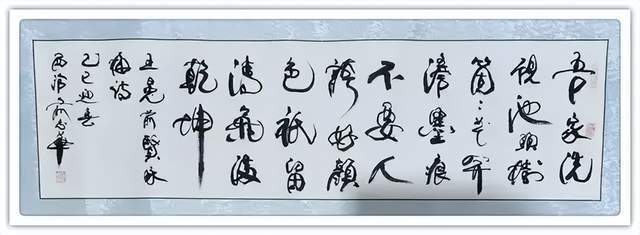 吾家洗
硯池頭樹
箇〻花開
澹墨痕
不要人
誇好顏
色祇留
清氣滿
乾坤
王冕前賢詠
梅詩
乙巳迎春